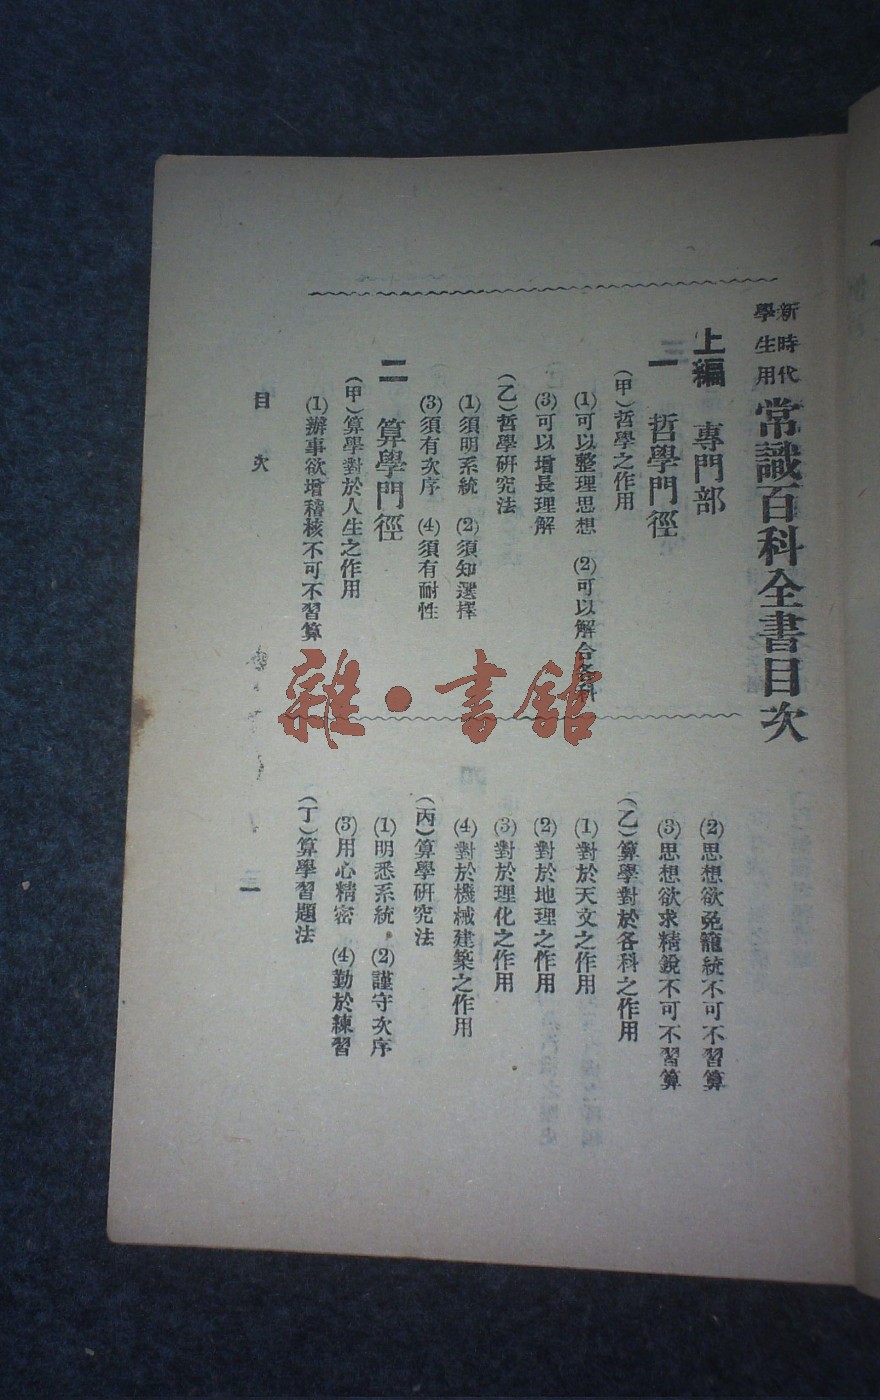 新時代
學生用
常識百科全書目次
上編　專門部
一　哲學門徑
（甲）哲學之作用
(1)可以整理思想　(2)可以解合各科
(3)可以增長理解
（乙）哲學研究法
(1)須明系統　(2)須知選擇
(3)須有次序　(4)須有耐性
二　算學門徑
（甲）算學對於人生之作用
(1)辦事欲增稽核不可不習算
(2)思想欲免籠統不可不習算
(3)思想欲求精銳不可不習算
（乙）算學對於各科之作用
(1)對於天文之作用
(2)對於地理之作用
(3)對於理化之作用
(4)對於機械建築之作用
（丙）算學研究法
(1)明悉系統　(2)謹守次序
(3)用心精密　(4)勤於練習
（丁）算學習題法
目次
一
雜·書館